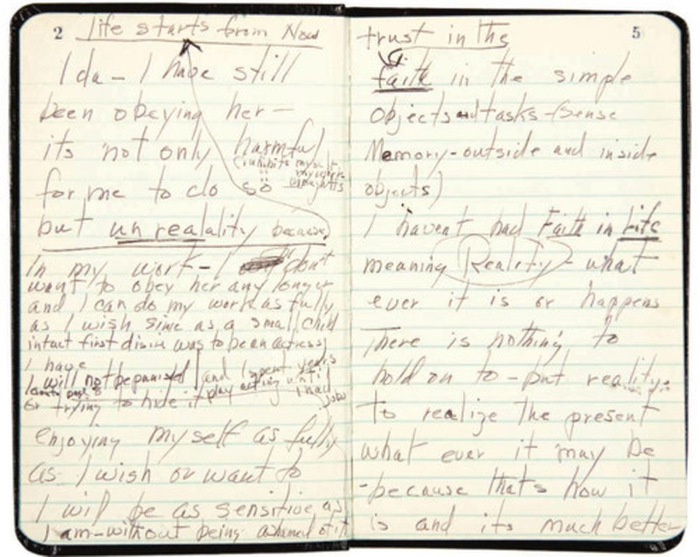 2 life starts from Now
Ida - I have still
been obeying her -
its not only harmful
for me to do so
inhibits myself
my work
thoughts
but unreality because
In my work - I don't
want to obey her any longer
and I can do my work as fully
as I wish since as a small child
intact first desire was to be an actress
I have
I will not be punished and I spent years
play acting until
I had
jobs
or trying to hide it
enjoying myself as fully
as I wish or want to
I will be as sensitive as
I am - without being ashamed of it
5
trust in the
faith in the simple
objects and tasks - (sense
Memory - outside and inside
objects)
I havent had Faith in Life
meaning Reality - what
ever it is or happens
There is nothing to
hold on to - but reality.
To realize the present
what ever it may be
- because thats how it
is and its much better